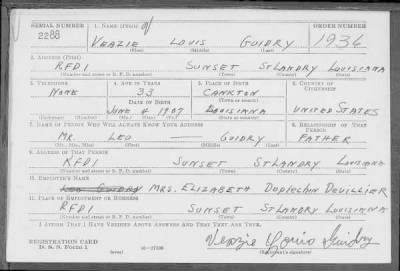 SERIAL NUMBER 1. NAME (Print) ORDER NUMBER
2288 VEAZIE LOUIS GUIDRY 1936
(First) (Middle) (Last)
2. ADDRESS (Print)
RFD1 SUNSET ST LANDRY LOUISIANA
(Number and street or R. F. D. number) (Town) (County) (State)
3. TELEPHONE 4. AGE IN YEARS 5. PLACE OF BIRTH 6. COUNTRY OF CITIZENSHIP
NONE 33 CANKTON
DATE OF BIRTH (Town or county)
JUNE 4 1907 LOUISIANA UNITED STATES
(Exchange) (Number) (Mo.) (Day) (Yr.) (State or country)
7. NAME OF PERSON WHO WILL ALWAYS KNOW YOUR ADDRESS 8. RELATIONSHIP OF THAT PERSON
MR. LEO — GUIDRY FATHER
(Mr., Mrs., Miss) (First) (Middle) (Last)
9. ADDRESS OF THAT PERSON
RFD1 SUNSET ST LANDRY LOUISIANA
(Number and street or R. F. D. number) (Town) (County) (State)
10. EMPLOYER'S NAME
LEO GUIDRY MRS. ELIZABETH DUPLECHIN DEVILLIER
11. PLACE OF EMPLOYMENT OR BUSINESS
RFD1 SUNSET ST LANDRY LOUISIANA
(Number and street or R. F. D. number) (Town) (County) (State)
I AFFIRM THAT I HAVE VERIFIED ABOVE ANSWERS AND THAT THEY ARE TRUE.
REGISTRATION CARD
D. S. S. Form 1 (over) Veazie Louis Guidry
(Registrant's signature)